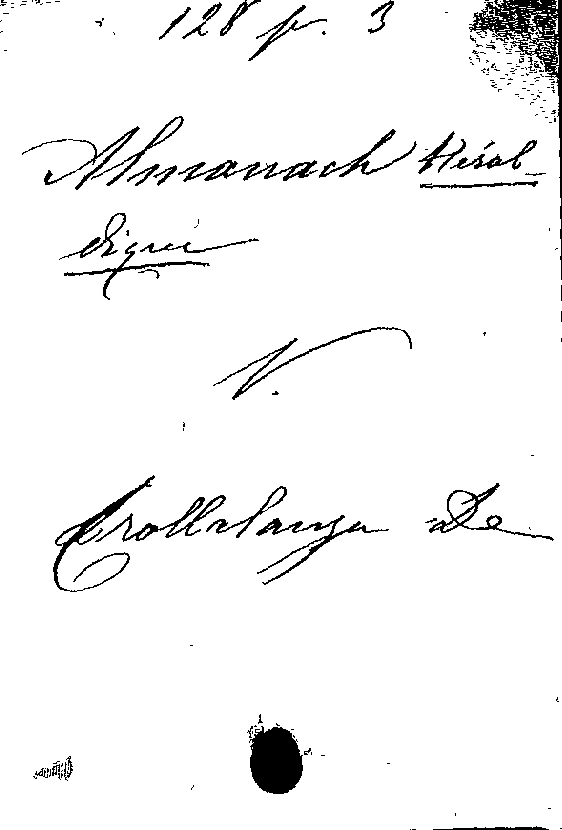 128 p. 3
Almanach Héral-
dique
V.
Crollalanza De